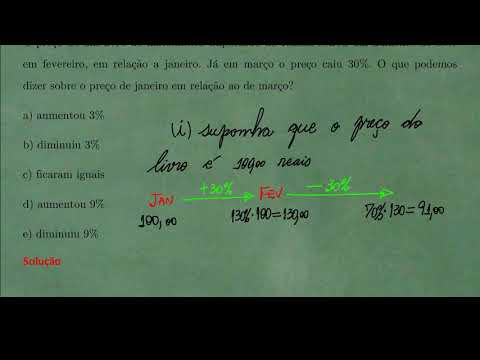 em fevereiro, em relação a janeiro. Já em março o preço caiu 30%. O que podemos
dizer sobre o preço de janeiro em relação ao de março?
a) aumentou 3%
b) diminuiu 3%
c) ficaram iguais
d) aumentou 9%
e) diminuiu 9%
Solução
(i) suponha que o preço do
livro é 100,00 reais
JAN +30% FEV -30%
100,00 130%·100=130,00 70%·130=91,00